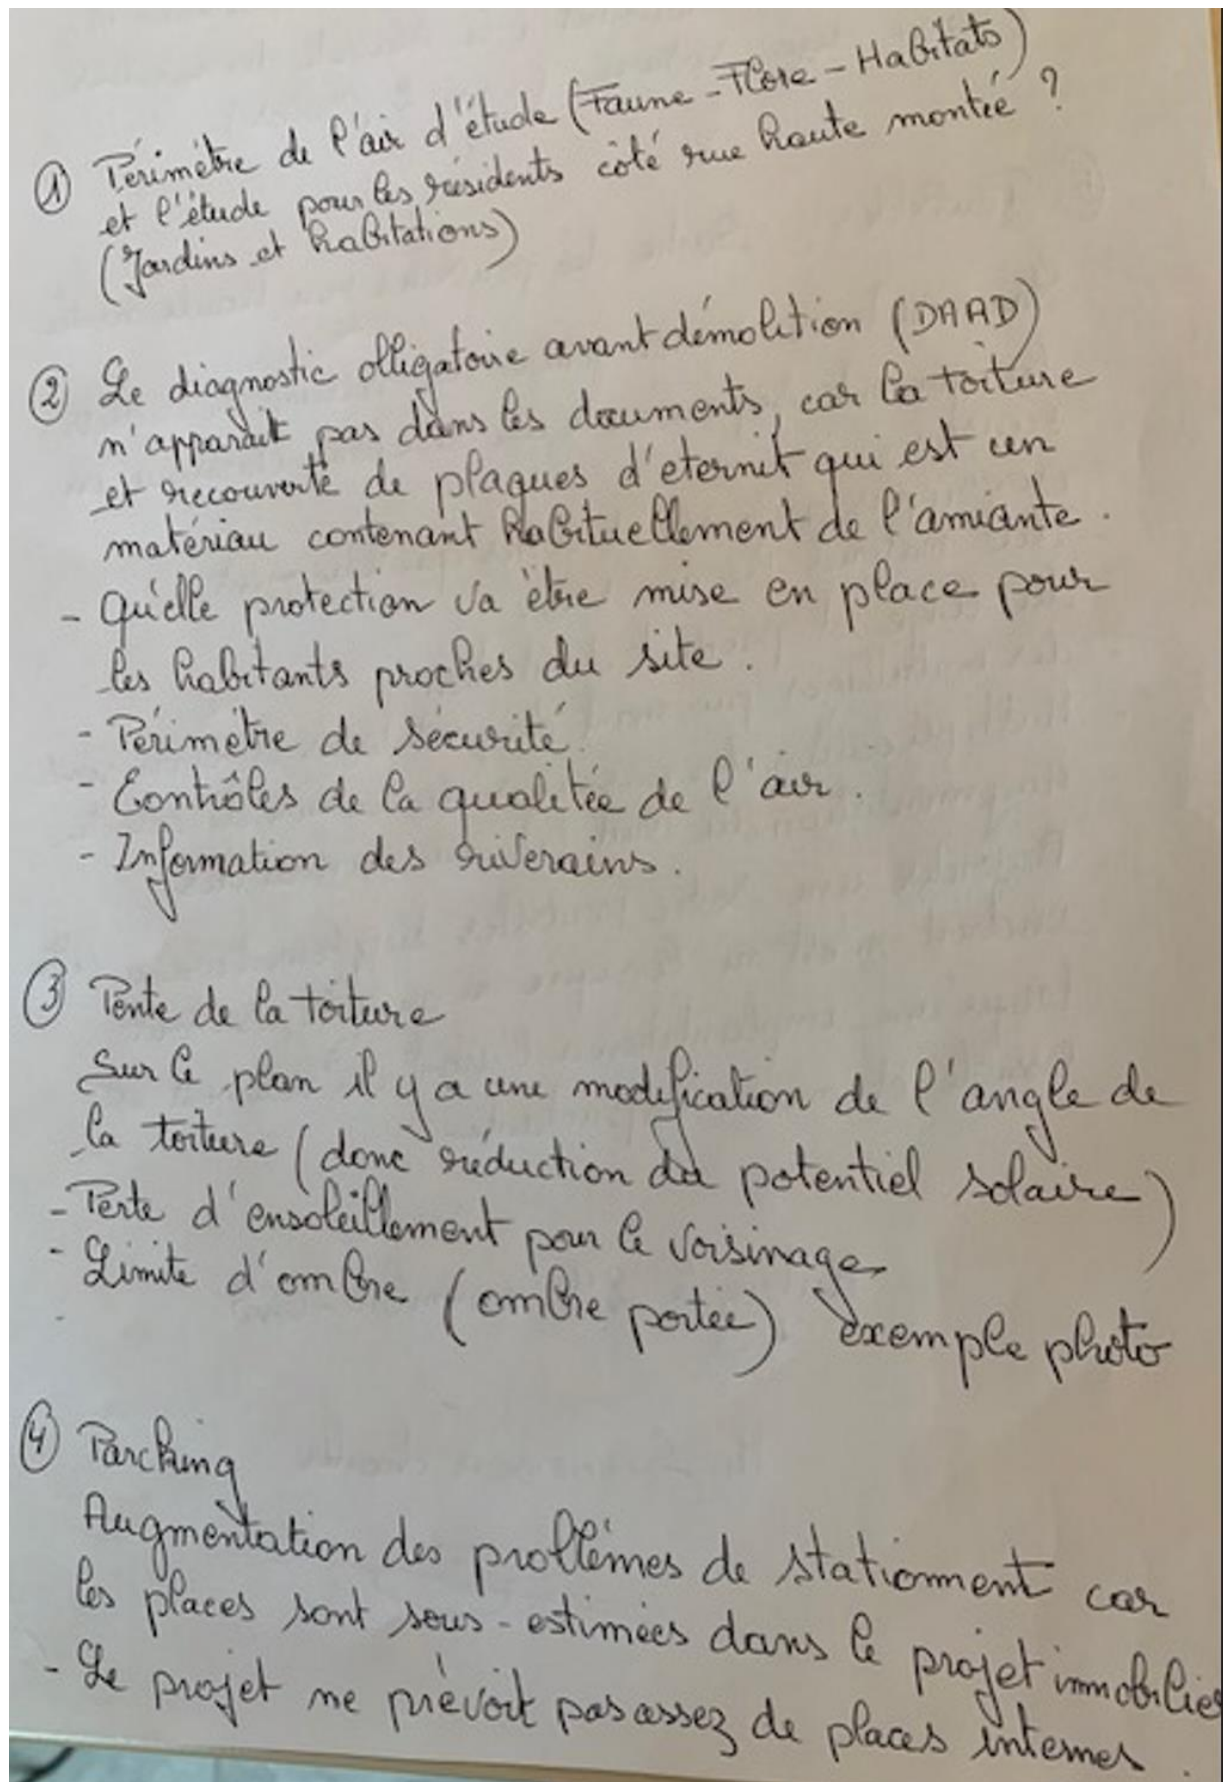 ① Périmètre de l'air d'étude (Faune - Flore - Habitats)
et l'étude pour les résidents côté rue haute montée ?
(Jardins et habitations)
② Le diagnostic obligatoire avant démolition (DAAD)
n'apparait pas dans les documents, car la toiture
et recouverte de plaques d'eternit qui est un
matériau contenant habituellement de l'amiante.
- Qu'elle protection va être mise en place pour
les habitants proches du site.
- Périmètre de sécurité.
- Contrôles de la qualitée de l'air.
- Information des riverains.
③ Pente de la toiture
Sur le plan il y a une modification de l'angle de
la toiture (donc réduction du potentiel solaire)
- Perte d'ensoleillement pour le voisinage
- Limite d'ombre (ombre portée) exemple photo
④ Parching
Augmentation des problèmes de stationnment car
les places sont sous-estimées dans le projet immobilier
- Le projet ne prévoit pas assez de places internes.